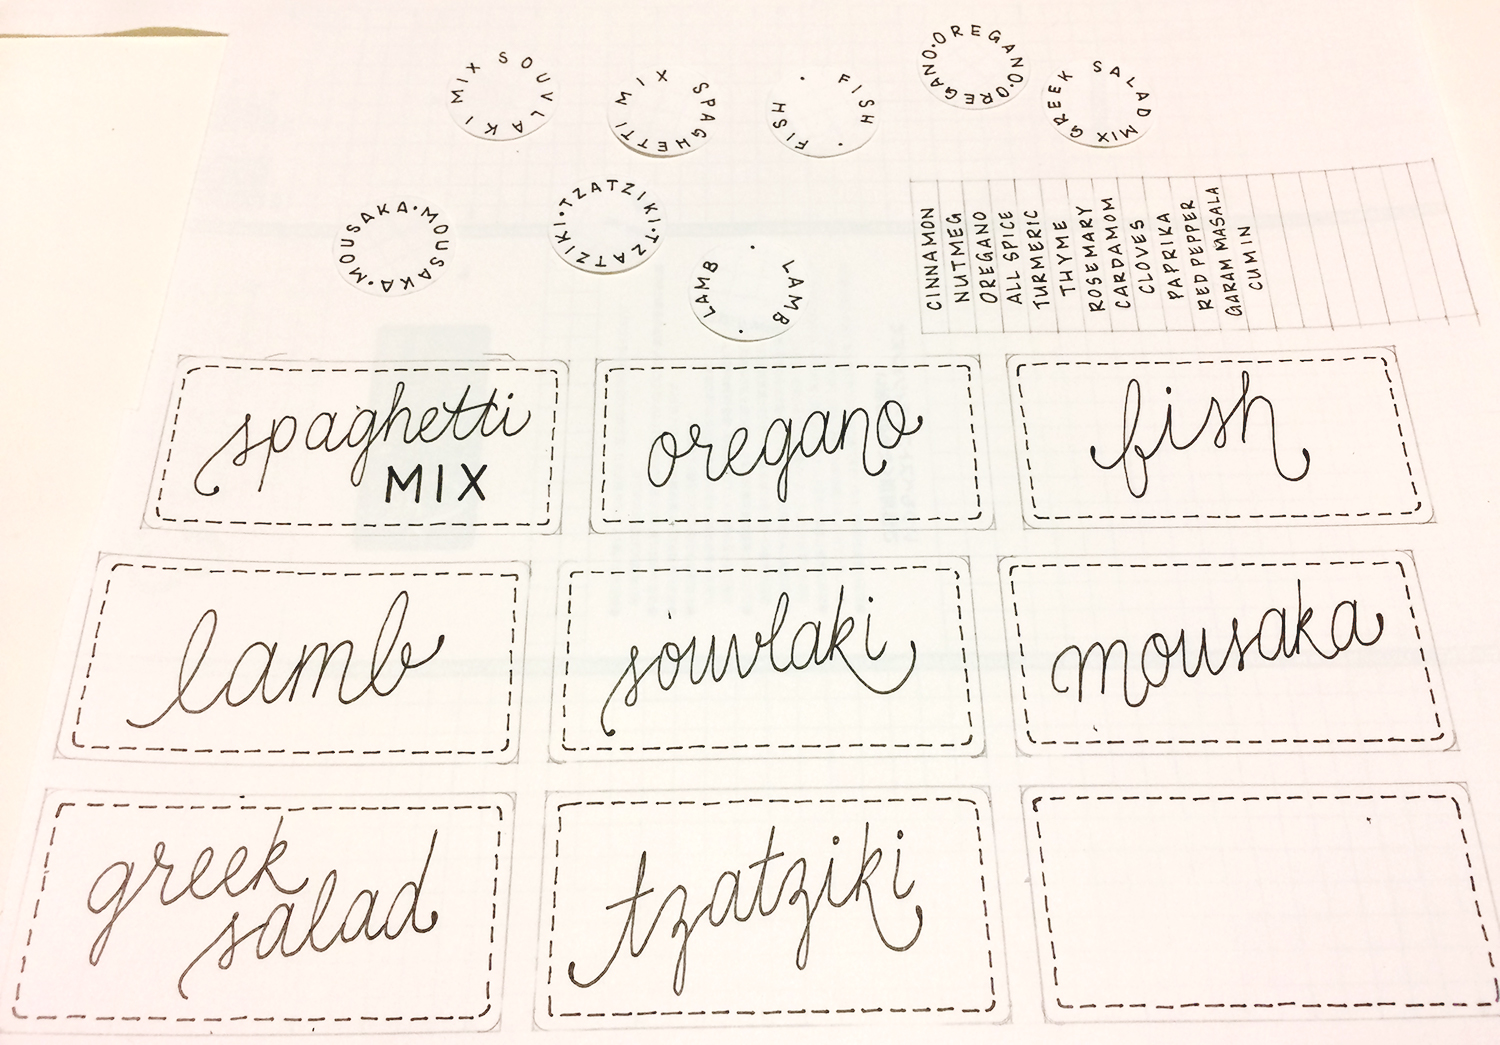 MIX SOUVLAKI
MIX SPAGHETTI
FISH · FISH ·
OREGANO · OREGANO · OREGANO
GREEK SALAD MIX
MOUSAKA · MOUSAKA · MOUSAKA
TZATZIKI · TZATZIKI · TZATZIKI
LAMB · LAMB ·
CINNAMON
NUTMEG
OREGANO
ALL SPICE
TURMERIC
THYME
ROSEMARY
CARDAMOM
CLOVES
PAPRIKA
RED PEPPER
GARAM MASALA
CUMIN
spaghetti
MIX
oregano
fish
lamb
souvlaki
mousaka
greek
salad
tzatziki